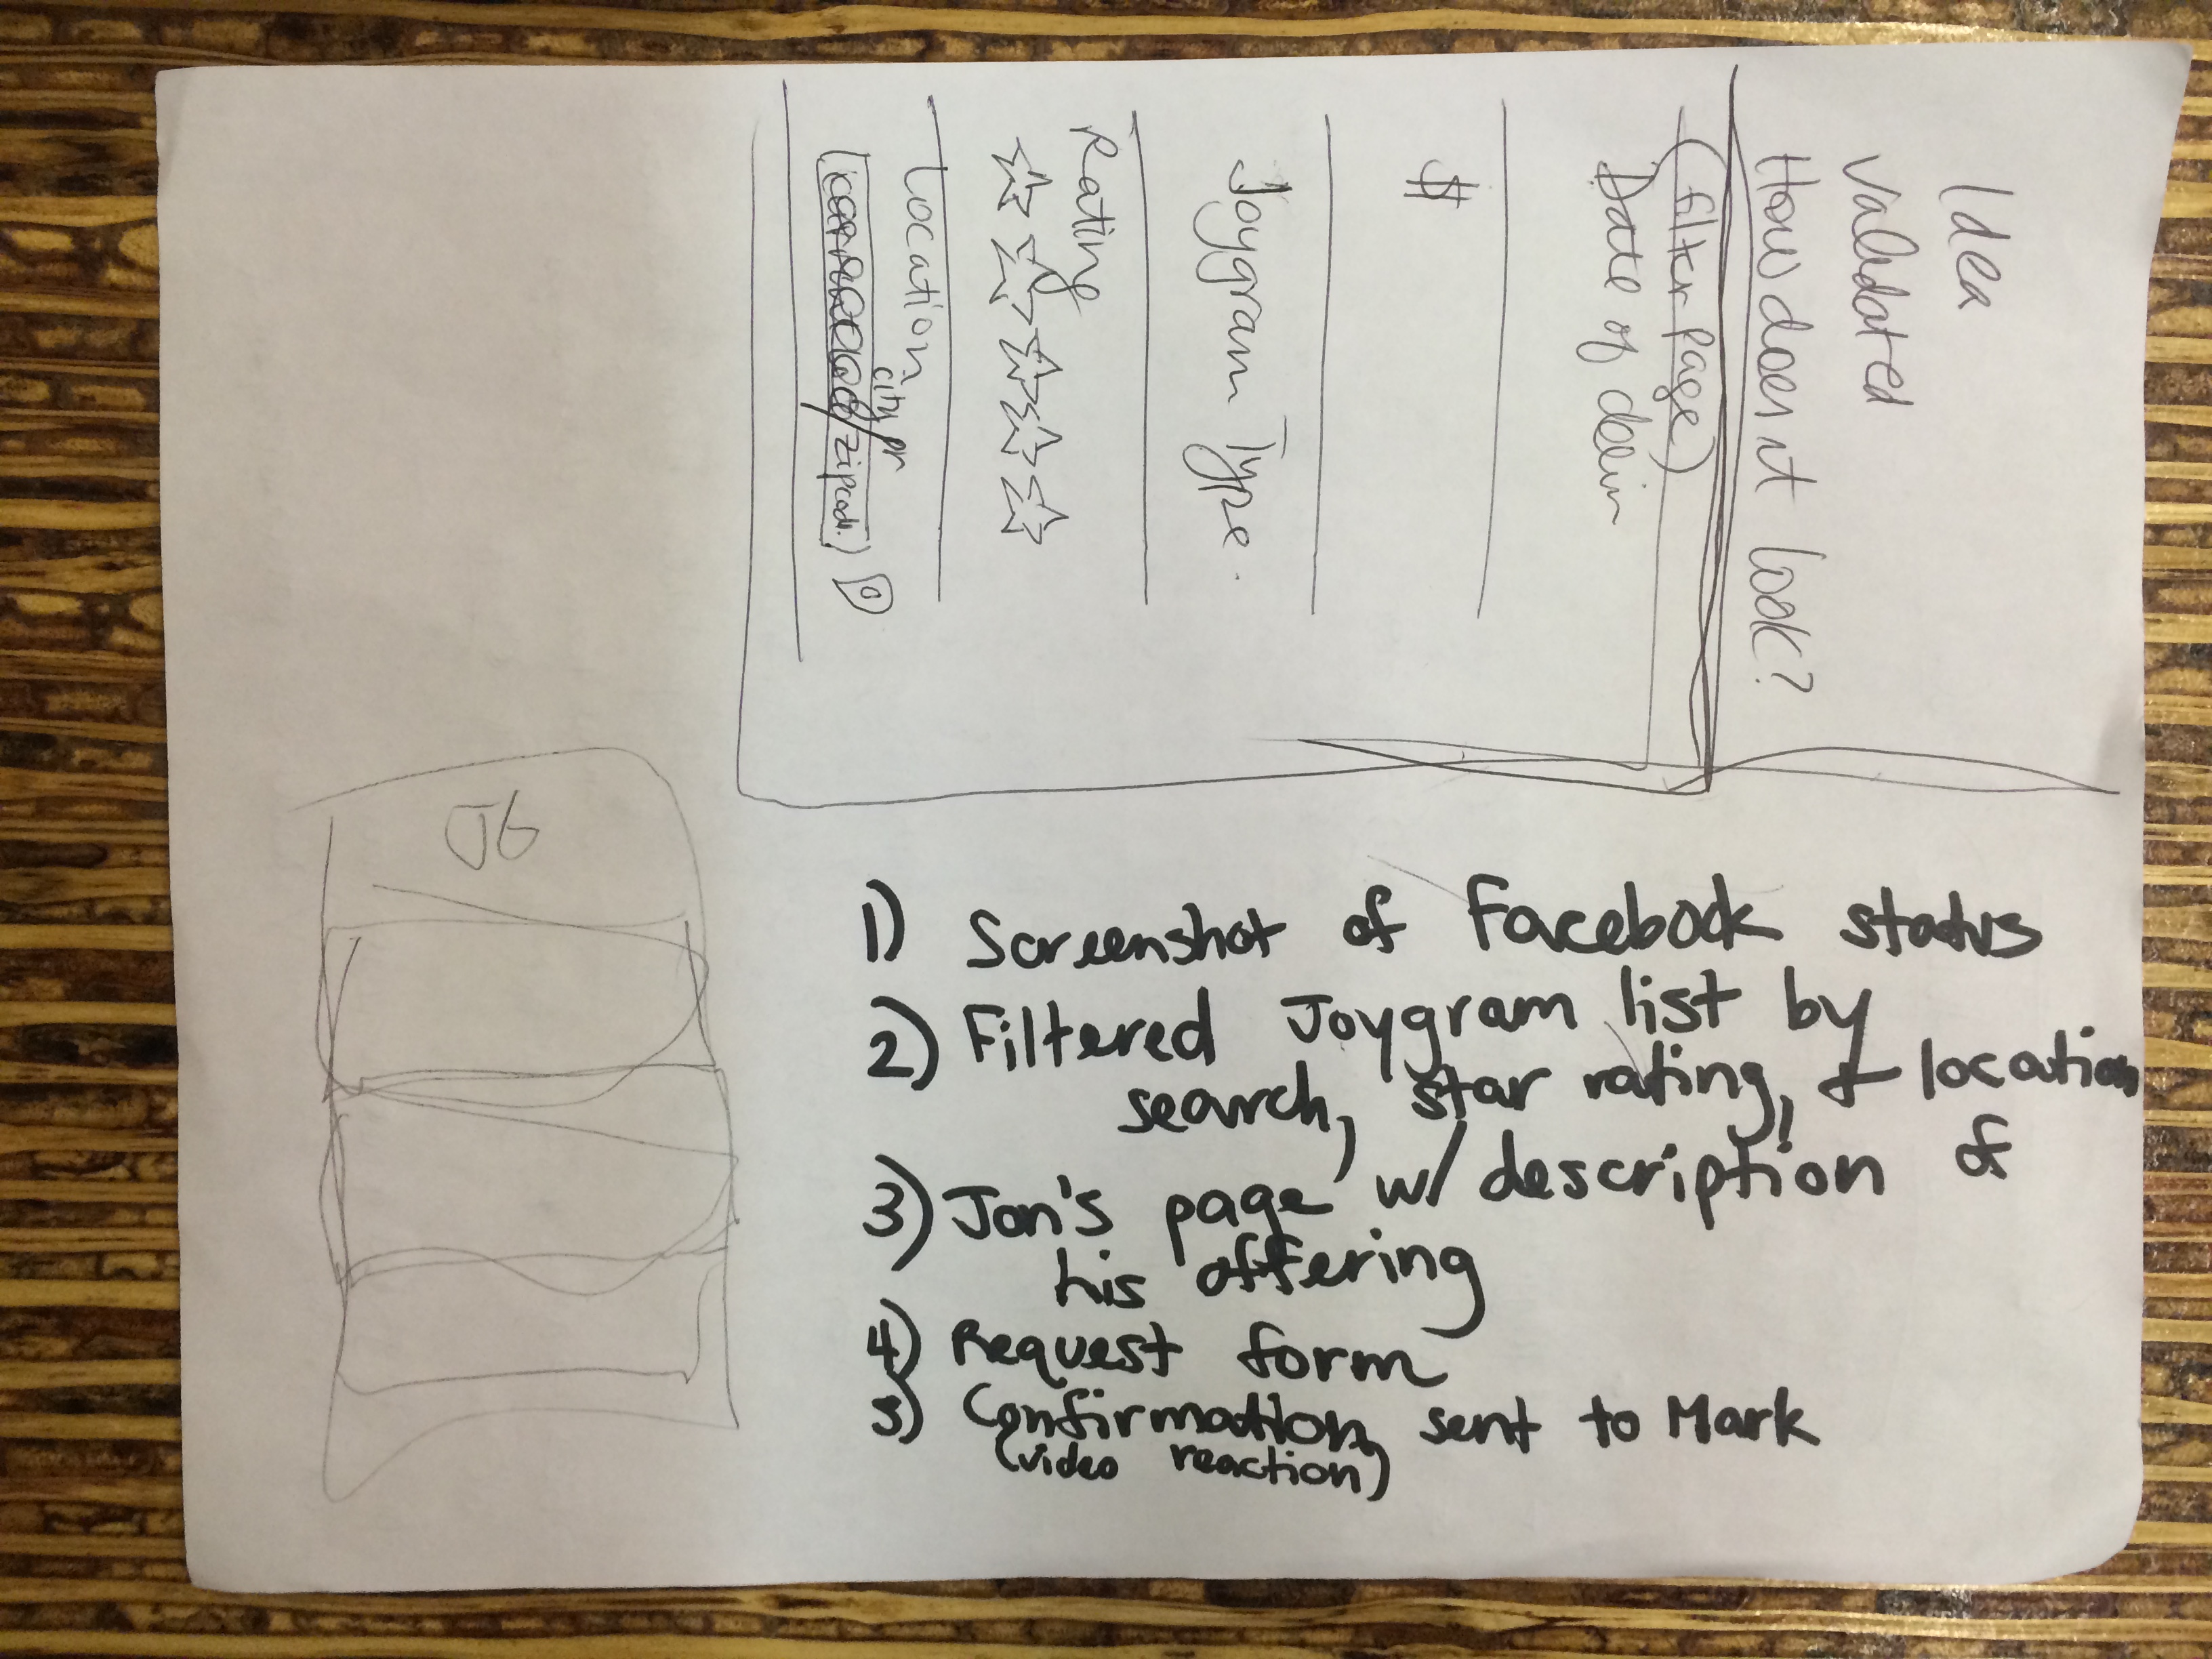 Idea
validated
How does it look?
(filter page)
Date of
$
Joygram Type.
Rating
Location
city or
zipcode.
1) Screenshot of facebook status
2) Filtered Joygram list by
search, star rating, & location
3) Jon's page w/ description &
his offering
4) Request form
5) Confirmation sent to Mark
(video reaction)
JG